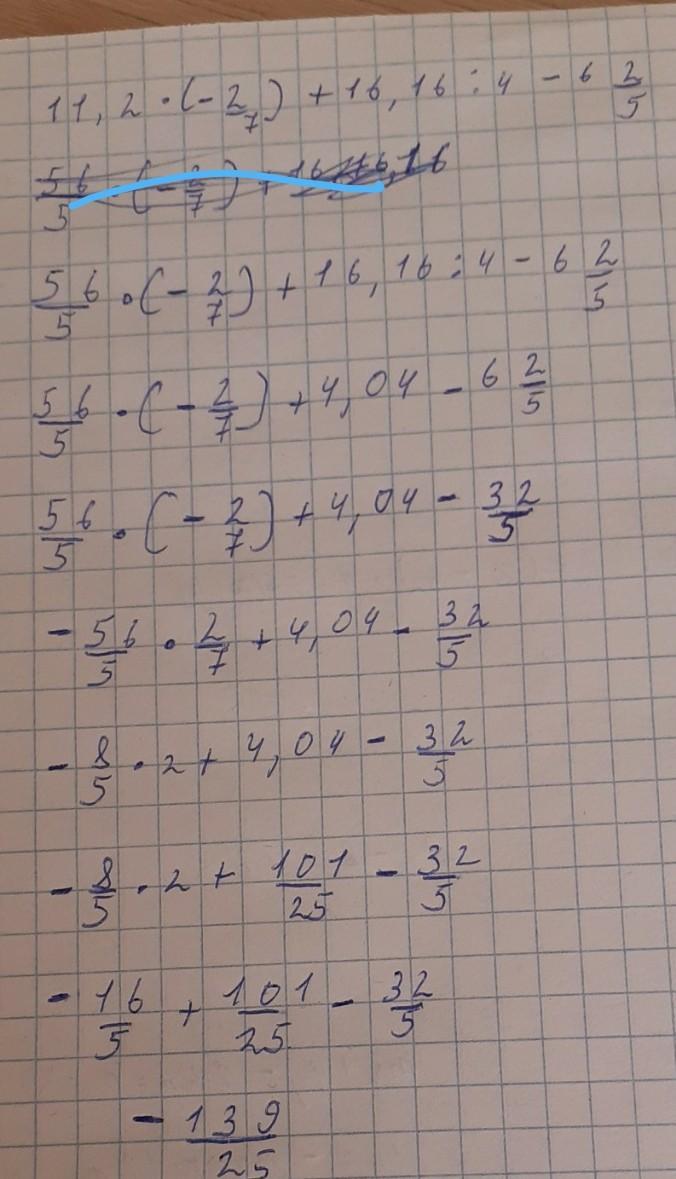 11,2 · (- 2/7) + 16,16 : 4 - 6 2/5
56/5 · (- 2/7) + 16,16
56/5 · (- 2/7) + 16,16 : 4 - 6 2/5
56/5 · (- 2/7) + 4,04 - 6 2/5
56/5 · (- 2/7) + 4,04 - 32/5
- 56/5 · 2/7 + 4,04 - 32/5
- 8/5 · 2 + 4,04 - 32/5
- 8/5 · 2 + 101/25 - 32/5
- 16/5 + 101/25 - 32/5
- 139/25